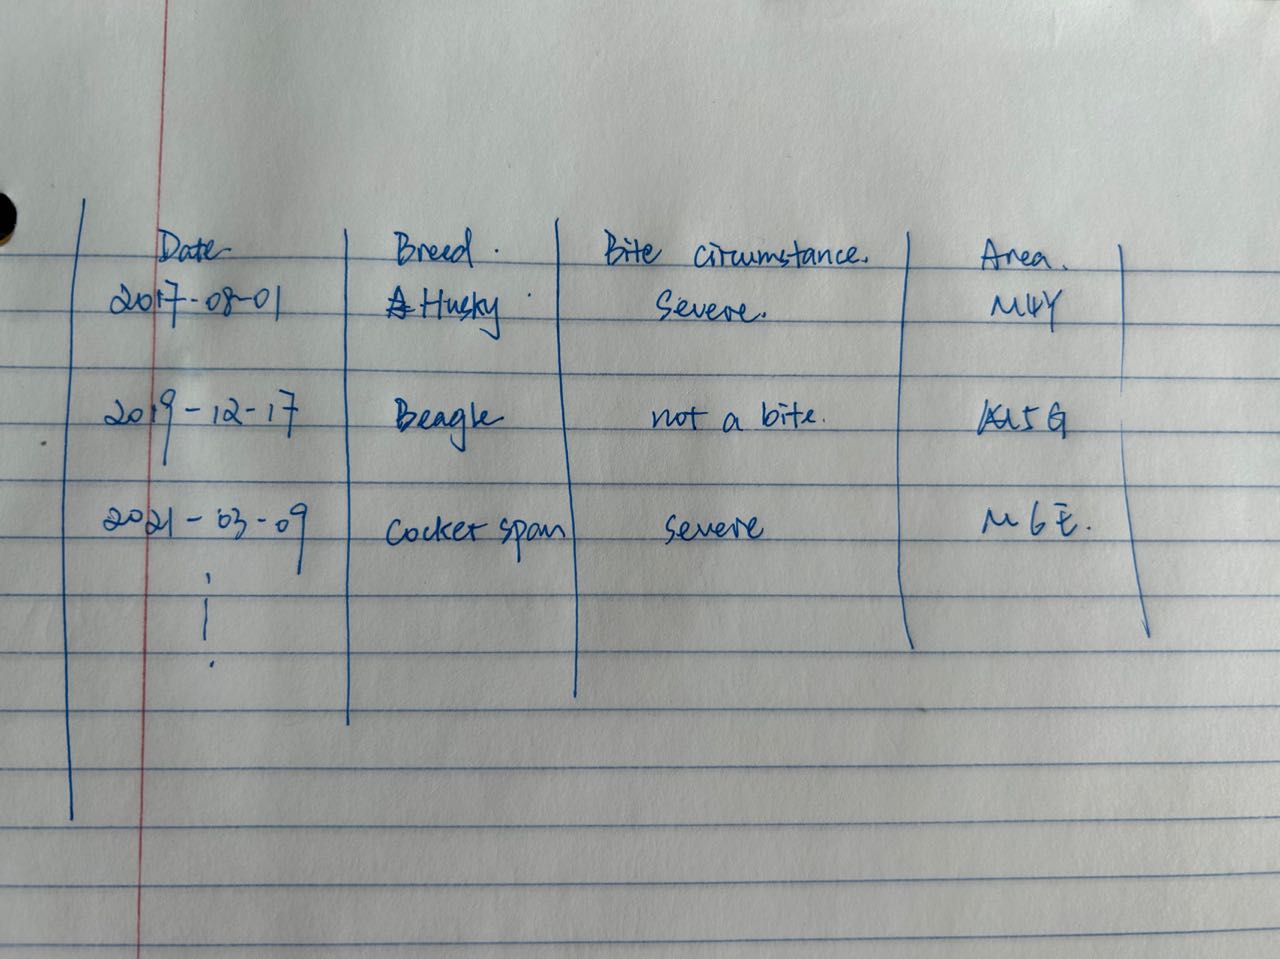 Date Breed. Bite circumstance. Area.
2017-08-01 Husky Severe. M4Y
2019-12-17 Beagle not a bite. M5G
2021-03-09 Cocker span severe M6E.